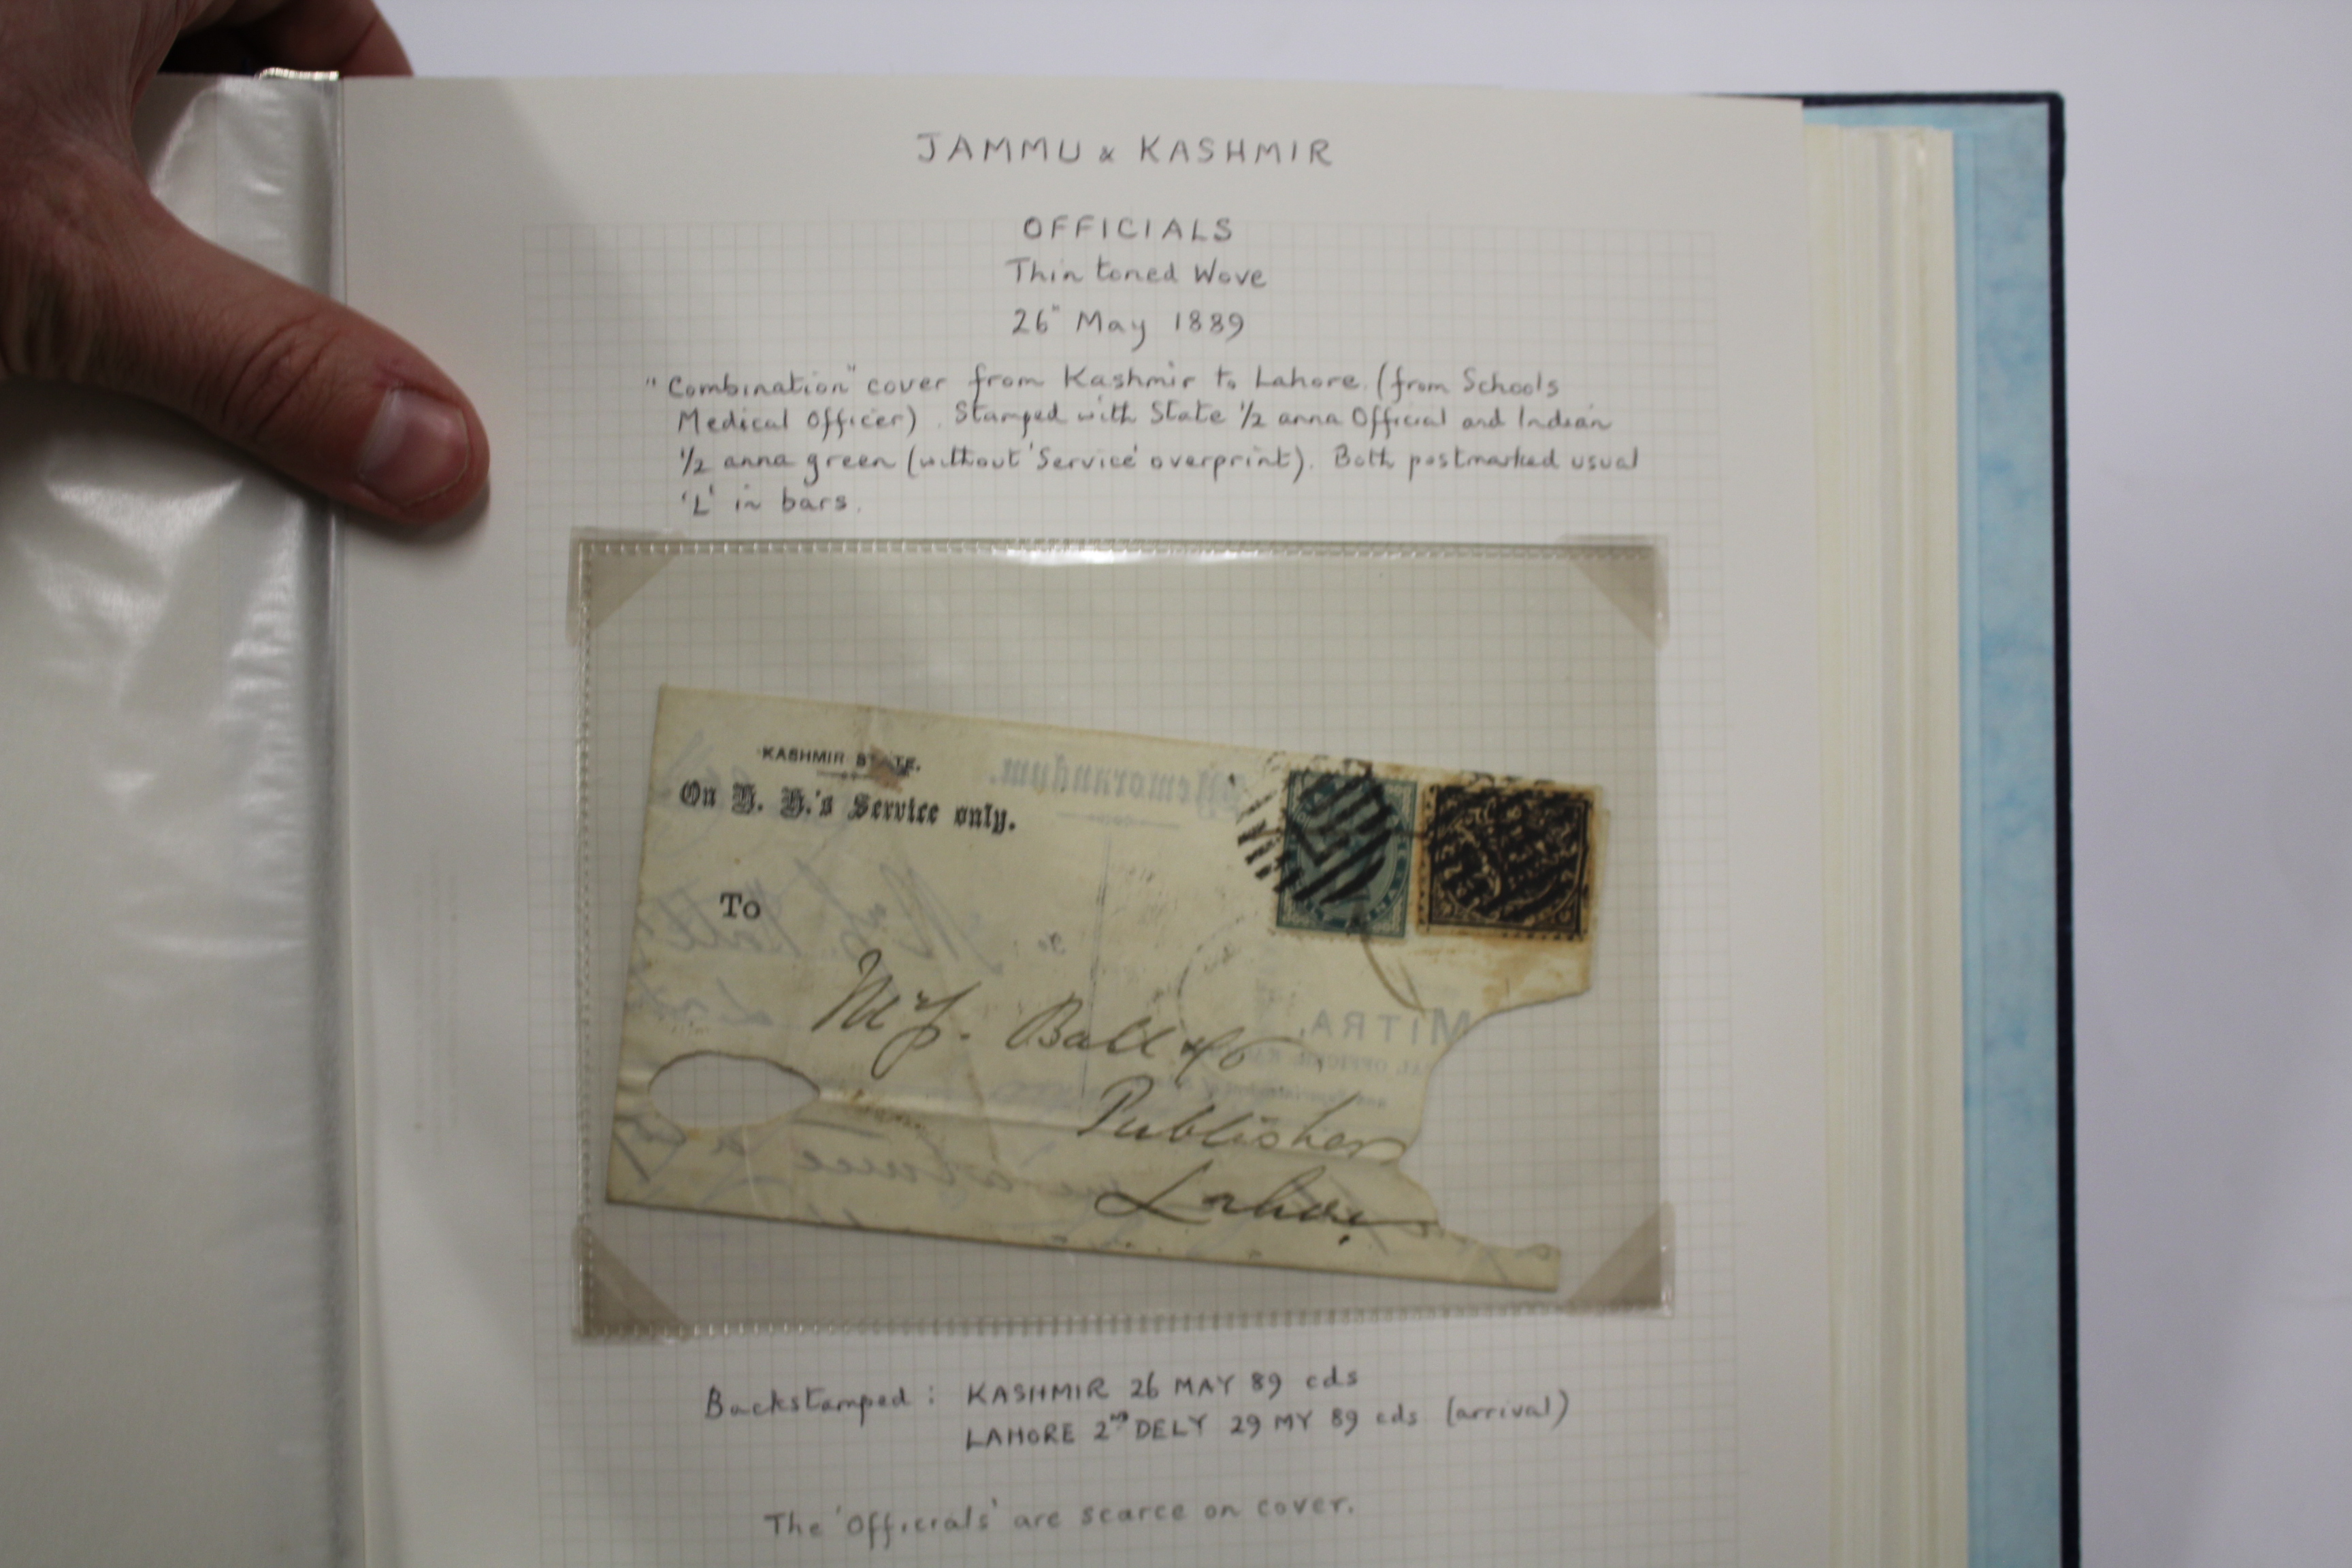 JAMMU & KASHMIR
OFFICIALS
Thin toned Wove
26" May 1889
"Combination" cover from Kashmir to Lahore. (from Schools
Medical Officer). Stamped with State 1/2 anna Official and Indian
1/2 anna green (without 'Service' overprint). Both postmarked usual
'L' in bars.
KASHMIR STATE.
Memorandum.
On H. H.'s Service only.
To
MITRA.
Ball & Co
Publishers
Lahore
Backstamped: KASHMIR 26 MAY 89 cds
LAHORE 2ND DELY 29 MY 89 cds (arrival)
The 'Officials' are scarce on cover.